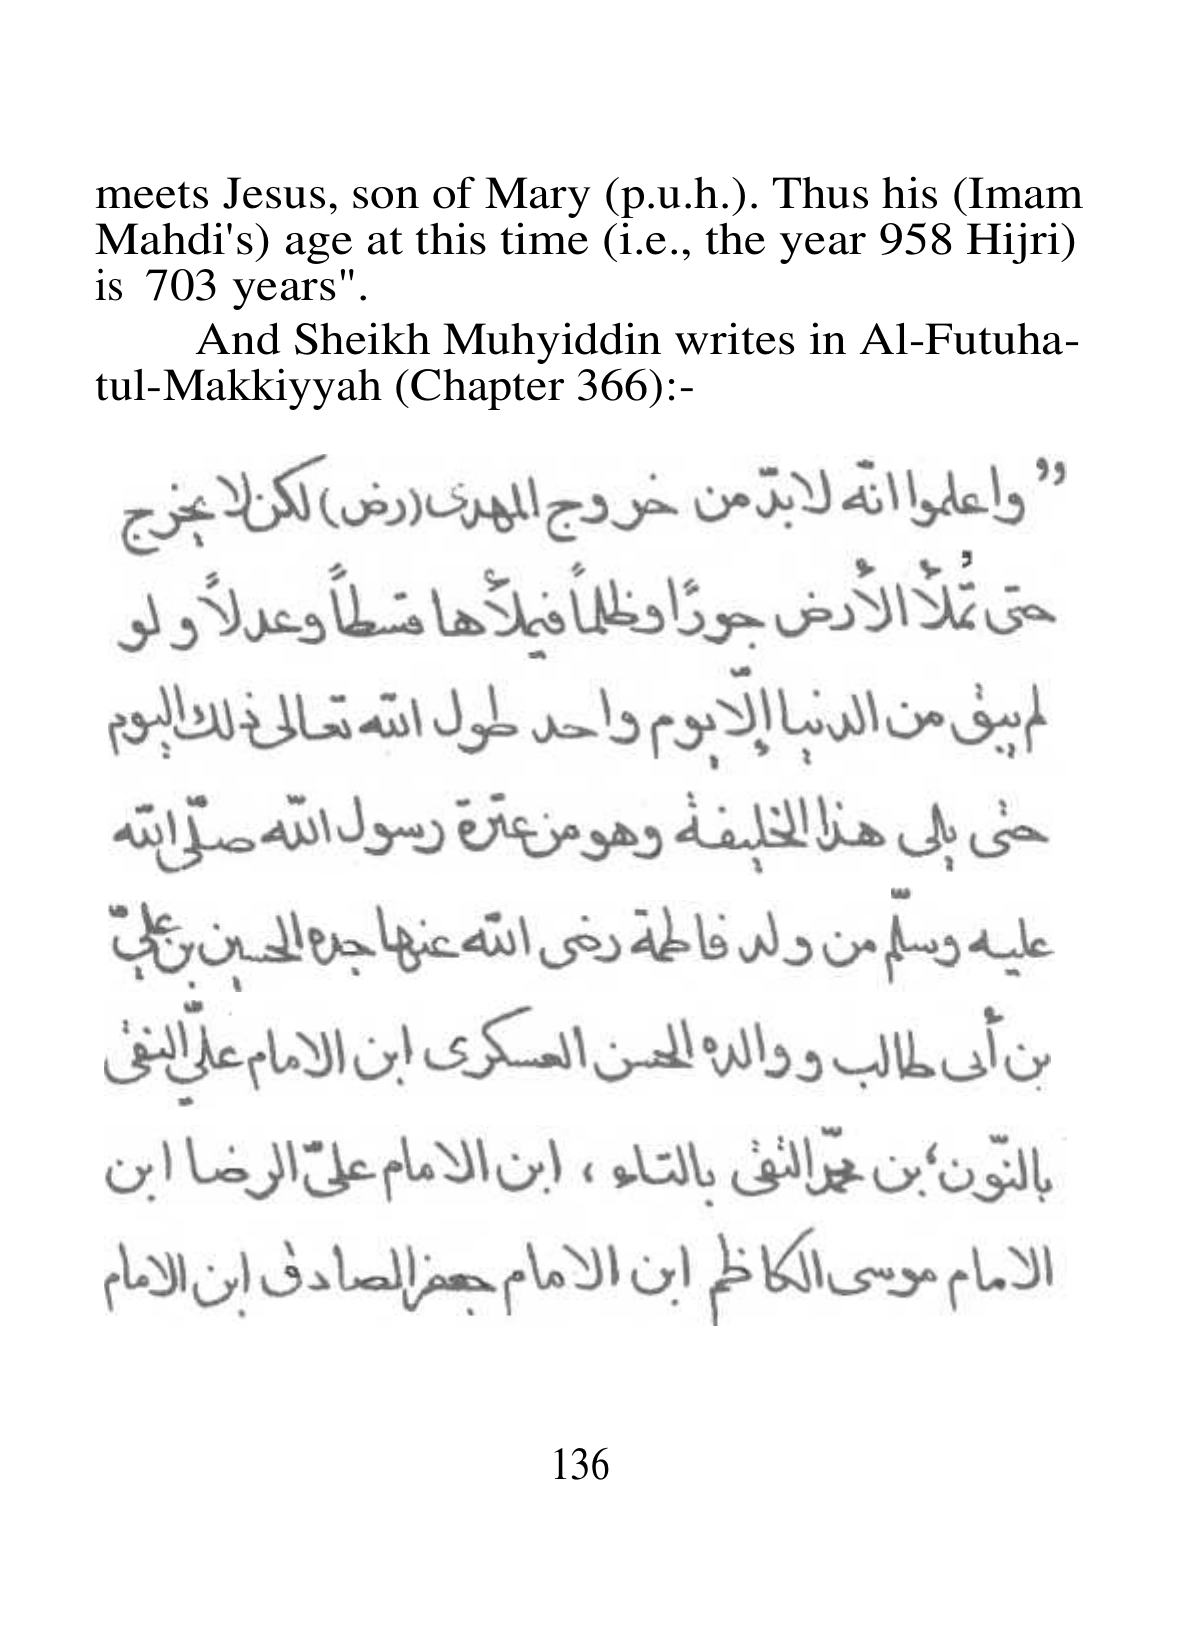 meets Jesus, son of Mary (p.u.h.). Thus his (Imam
Mahdi's) age at this time (i.e., the year 958 Hijri)
is 703 years".
And Sheikh Muhyiddin writes in Al-Futuha-
tul-Makkiyyah (Chapter 366):-
” واعلموا انّه لا بدّ من خروج المهدى (رض) لكن لا يخرج
حتى تُملأَ الأرض جورًا وظلماً فيملأها قسطاً وعدلاً ولو
لم يبق من الدنيا إلّا يوم واحد طول الله تعالى ذلك اليوم
حتى يلى هذا الخليفة وهو من عترة رسول الله صلّى الله
عليه وسلّم من ولد فاطمة رضى الله عنها جده الحسين بن علىّ
بن أبى طالب ووالده الحسن العسكرى ابن الامام علىّ النقى
بالنّون، بن محمّد التقى بالتاء، ابن الامام علىّ الرضا ابن
الامام موسى الكاظم ابن الامام جعفر الصادق ابن الامام
136